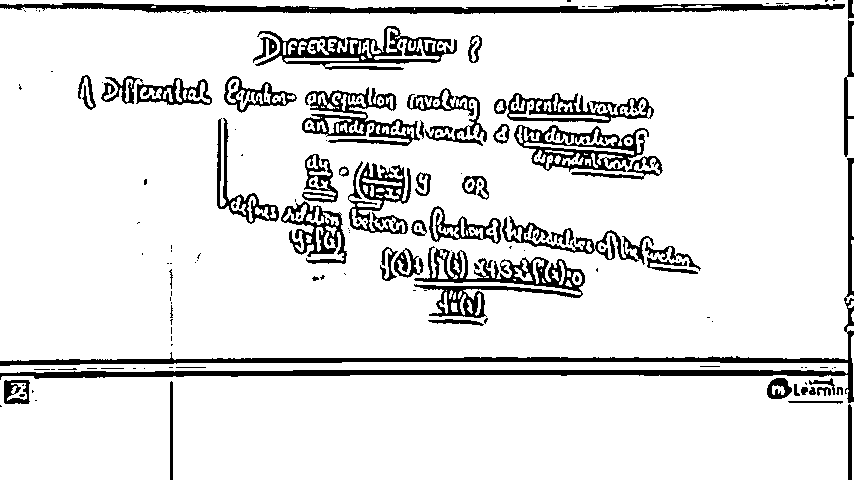 DIFFERENTIAL EQUATION ?
A Differential Equation- an equation involving a dependent variable,
an independent variable & the derivative of
dependent variable
dy/dx = (1+x/1-x) y OR
defines relation between a function & the derivatives of the function
y=f(x)
Learning